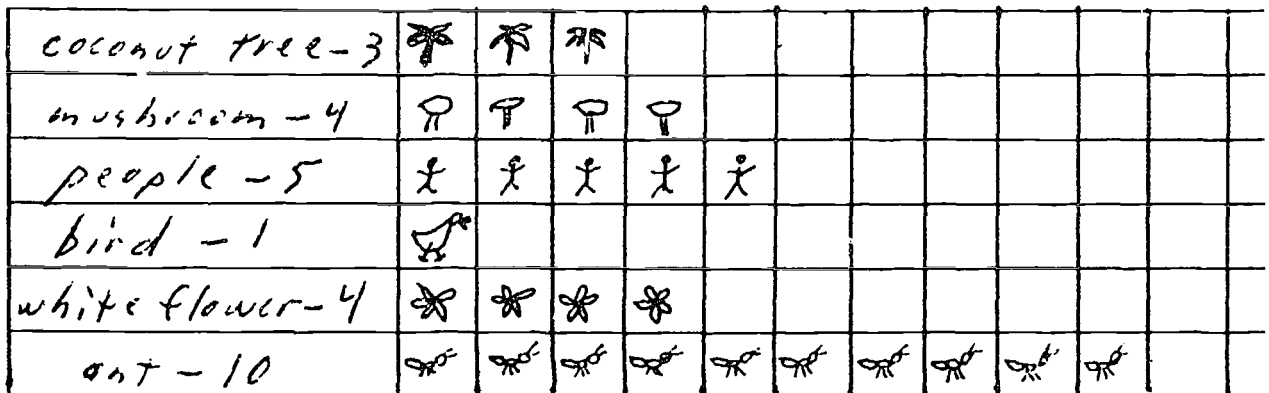 coconut tree-3
mushroom-4
people-5
bird-1
white flower-4
ant-10